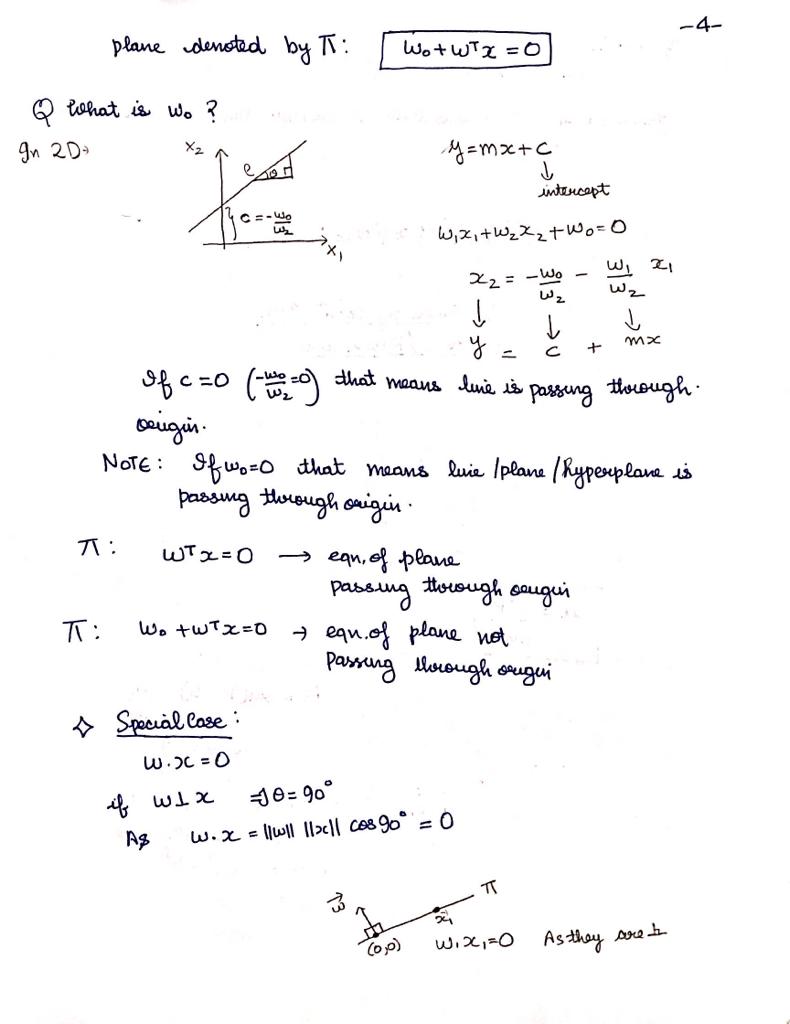 -4-
plane denoted by π: w₀+wᵀx=0
Q What is w₀ ?
In 2D→
x₂
l
θ
c = -w₀/w₂
x₁
y=mx+c
↓
intercept
w₁x₁+w₂x₂+w₀=0
x₂ = -w₀/w₂ - w₁/w₂ x₁
↓ ↓ ↓
y = c + mx
If c=0 (-w₀/w₂=0) that means line is passing through.
origin.
NOTE: If w₀=0 that means line/plane/hyperplane is
passing through origin.
π: wᵀx=0 → eqn. of plane
passing through origin
π: w₀+wᵀx=0 → eqn. of plane not
passing through origin
✧ Special Case:
w.x=0
if w⊥x ⇒ θ=90°
As w.x = ||w|| ||x|| cos90° = 0
w⃗
π
x₁
(0,0) w.x₁=0 As they are ⊥